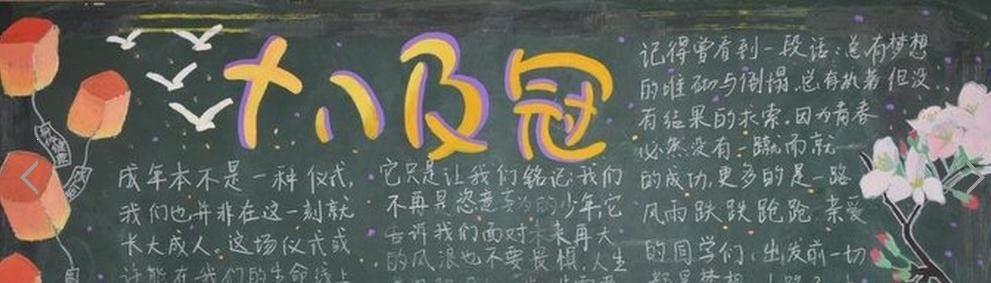 十八及冠
成年本不是一种仪式,
我们也并非在这一刻就
长大成人。这场仪式或
许能在我们的生命线上
它只是让我们铭记:我们
不再是恣意妄为的少年,它
告诉我们面对未来再大
的风浪也不要畏惧,人生
记得曾看到一段话:总有梦想
的堆砌与倒塌,总有执着但没
有结果的求索。因为青春
必然没有一蹴而就
的成功,更多的是一路
风雨跌跌跑跑。亲爱
的同学们,出发前一切